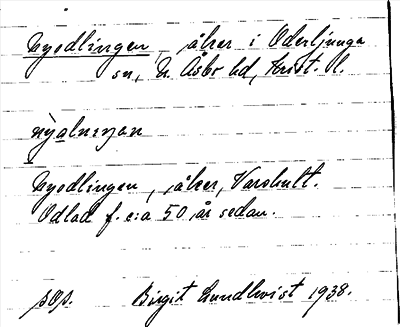 Nyodlingen, åker i Oderljunga
sn, N. Åsbo hd, Krist. l.
Nyodlingen, åker, Varshult.
Odlad f. c:a 50 år sedan.
pop. Birgit Lundkvist 1938.